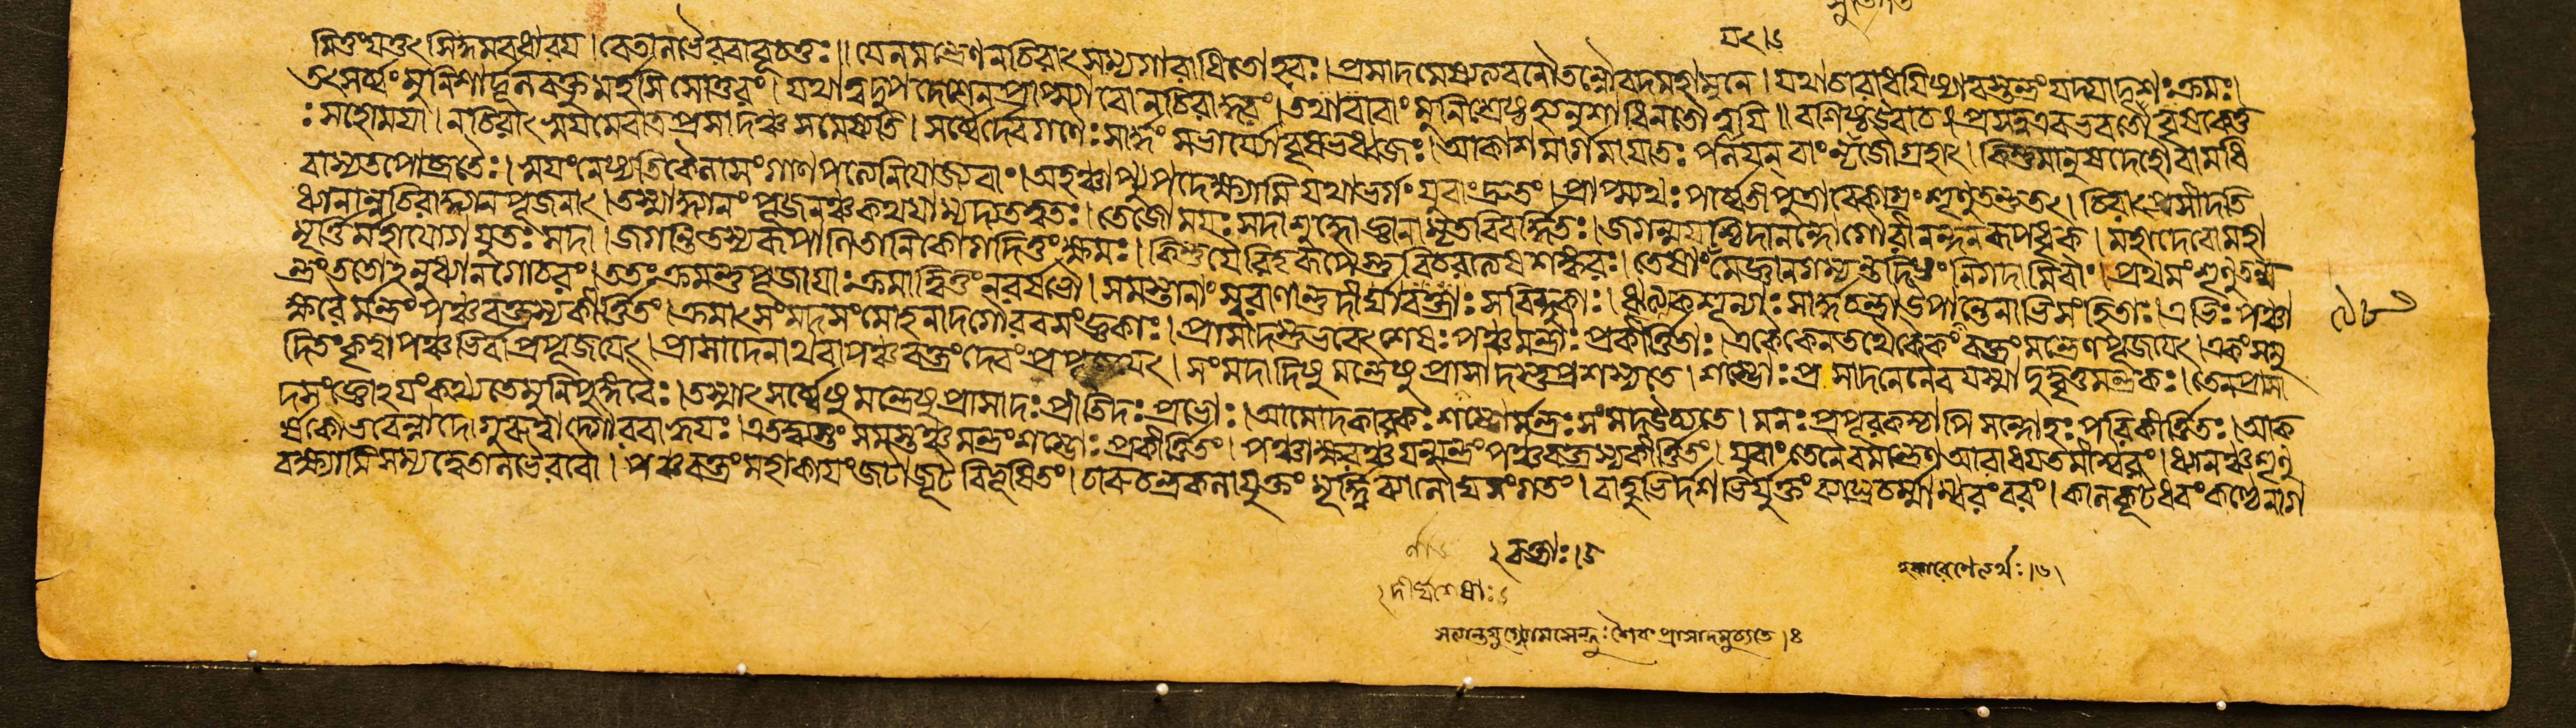 যৎ।১
মিতুং যত্তৎ সিদ্ধমবধারয়। বেতালভৈরবাবূচতুঃ॥ যেন মন্ত্রেণ নচিরাৎ সম্যগারাধিতো হরঃ। প্রসাদমেষ্যত্যবনৌ তন্নৌ বদ মহামুনে। যথা চারাধয়িষ্যাবস্তন্ত্রং যদ্যাদৃশঃ ক্রমঃ।
তৎ সর্ব্বং মুনিশার্দ্দূল বক্তুমর্হসি সোত্তরং। যথা ত্বদুপদেশেন প্রাপ্স্যাবো নচিরাদ্ধরং। তথা বাবাং মুনিশ্রেষ্ঠ হ্যনুশাধি নতৌ ত্বয়ি॥ বশিষ্ঠ উবাচ॥ প্রসন্ন এব ভবতো বৃষকেতু
ঃ সহোময়া। নচিরাৎ স্বয়মেবাত্র প্রসাদঞ্চ সমেষ্যতি। সর্ব্বৈর্দেবগণৈঃ সার্দ্ধং সভার্য্যো বৃষভধ্বজঃ। আকাশমার্গমায়াতঃ পালয়ন্ বাং গৃহাৎ। কিন্তু মানুষদেহৌ বামধি
বাস্য তপোব্রতৈঃ। স্বয়ং নেষ্যতি কৈলাসং গাণপত্যে নিযোজ্য বাং। অহঞ্চাপ্যুপদেক্ষ্যামি যথা ভর্গং যুবাং দ্রুতং। প্রাপ্স্যথঃ পার্ব্বতীপুত্রাবেকাগ্রং শৃণুতন্তু তৎ। চিরাৎ প্রসীদতি
ধ্যানান্নচিরাদ্ধ্যানপূজনাৎ। তস্মাদ্ধ্যানং পূজনঞ্চ কথয়াম্যদ্য তত্ত্বতঃ। তেজোময়ঃ সদা শুদ্ধো জ্ঞানামৃতবিবর্দ্ধিতঃ। জগন্ময়শ্চিদানন্দো শৌরীনন্দনরূপধৃক্। মহাদেবো মহা
মূর্ত্তির্মহাযোগযুতঃ সদা। জগন্তি তস্য রূপাণি তানি কো গদিতুং ক্ষমঃ। কিন্তু যৈরিহ রূপৈস্তু বিচরত্যেষ শঙ্করঃ। তেষাং মে জ্ঞানগম্যন্তু নিগদামি বাং। প্রথমং শৃণুতং ম
ন্ত্রং ততোঽনুধ্যানগোচরং। ততঃ ক্রমন্তু পূজায়াঃ ক্রমাদ্বেত্তুং নরর্ষভৌ। সমস্তানাং স্বরাণান্তু দীর্ঘাবস্ত্রাঃ সবিন্দুকাঃ। ঋ৯কশূন্যাঃ সার্দ্ধচন্দ্রা উপান্তেনাভিসংহিতাঃ। এভিঃ পঞ্চা
ক্ষরৈর্মন্ত্রং পঞ্চবক্ত্রস্য কীর্ত্তিতং। ক্রমাৎ সংমদসংমোহনাদগৌরবসংজ্ঞকাঃ। প্রাসাদস্তু ভবেৎ শেষঃ পঞ্চমন্ত্রাঃ প্রকীর্ত্তিতাঃ। একৈকেন তথৈকৈকং বক্ত্রং মন্ত্রেণ পূজয়েৎ। একং সমু
দিতং কৃত্বা পঞ্চভির্বা প্রপূজয়েৎ। প্রাসাদেনাথবা পঞ্চবক্ত্রং দেবং প্রপূজয়েৎ। সংমদাদিষু মন্ত্রেষু প্রাসাদস্তু প্রশস্যতে। শম্ভোঃ প্রসাদনেনৈব যস্মাদ্বৃত্তস্তু মন্ত্রকঃ। তেন প্রাসা
দসংজ্ঞোঽয়ং কথ্যতে মুনিপুঙ্গবৈঃ। তস্মাৎ সর্ব্বেষু মন্ত্রেষু প্রাসাদঃ প্রীতিদঃ প্রভোঃ। আমোদকারকঃ শম্ভোর্মন্ত্রঃ সংমদ উচ্যতে। মনঃপ্রপূরকশ্চাপি সন্মোহঃ পরিকীর্ত্তিতঃ। আক
র্ষকো ভবেন্নাদো গুরুত্বাদ্গৌরবাহ্বয়ঃ। এতদ্ব্যস্তং সমস্তঞ্চ মন্ত্রং শম্ভোঃ প্রকীর্ত্তিতং। পঞ্চাক্ষরঞ্চ যন্মন্ত্রং পঞ্চবক্ত্রস্য কীর্ত্তিতং। যুবাং তেনৈব মন্ত্রেণ আরাধয়তমীশ্বরং। ধ্যানঞ্চ শৃণু
বক্ষ্যামি সম্যগ্বেতালভৈরবৌ। পঞ্চবক্ত্রং মহাকায়ং জটাজূটবিভূষিতং। চারুচন্দ্রকলাযুক্তং মূর্দ্ধ্নি বালৌঘসংগতং। বাহুভির্দশভির্যুক্তং ব্যাঘ্রচর্ম্মাম্বরং বরং। কালকূটধরং কণ্ঠে নাগ
২ বক্ত্রাঃ।১
হকারেণেত্যর্থঃ।৬।
২ দীর্ঘশেষাঃ ১
প্রাসাদমুচ্যতে।৪